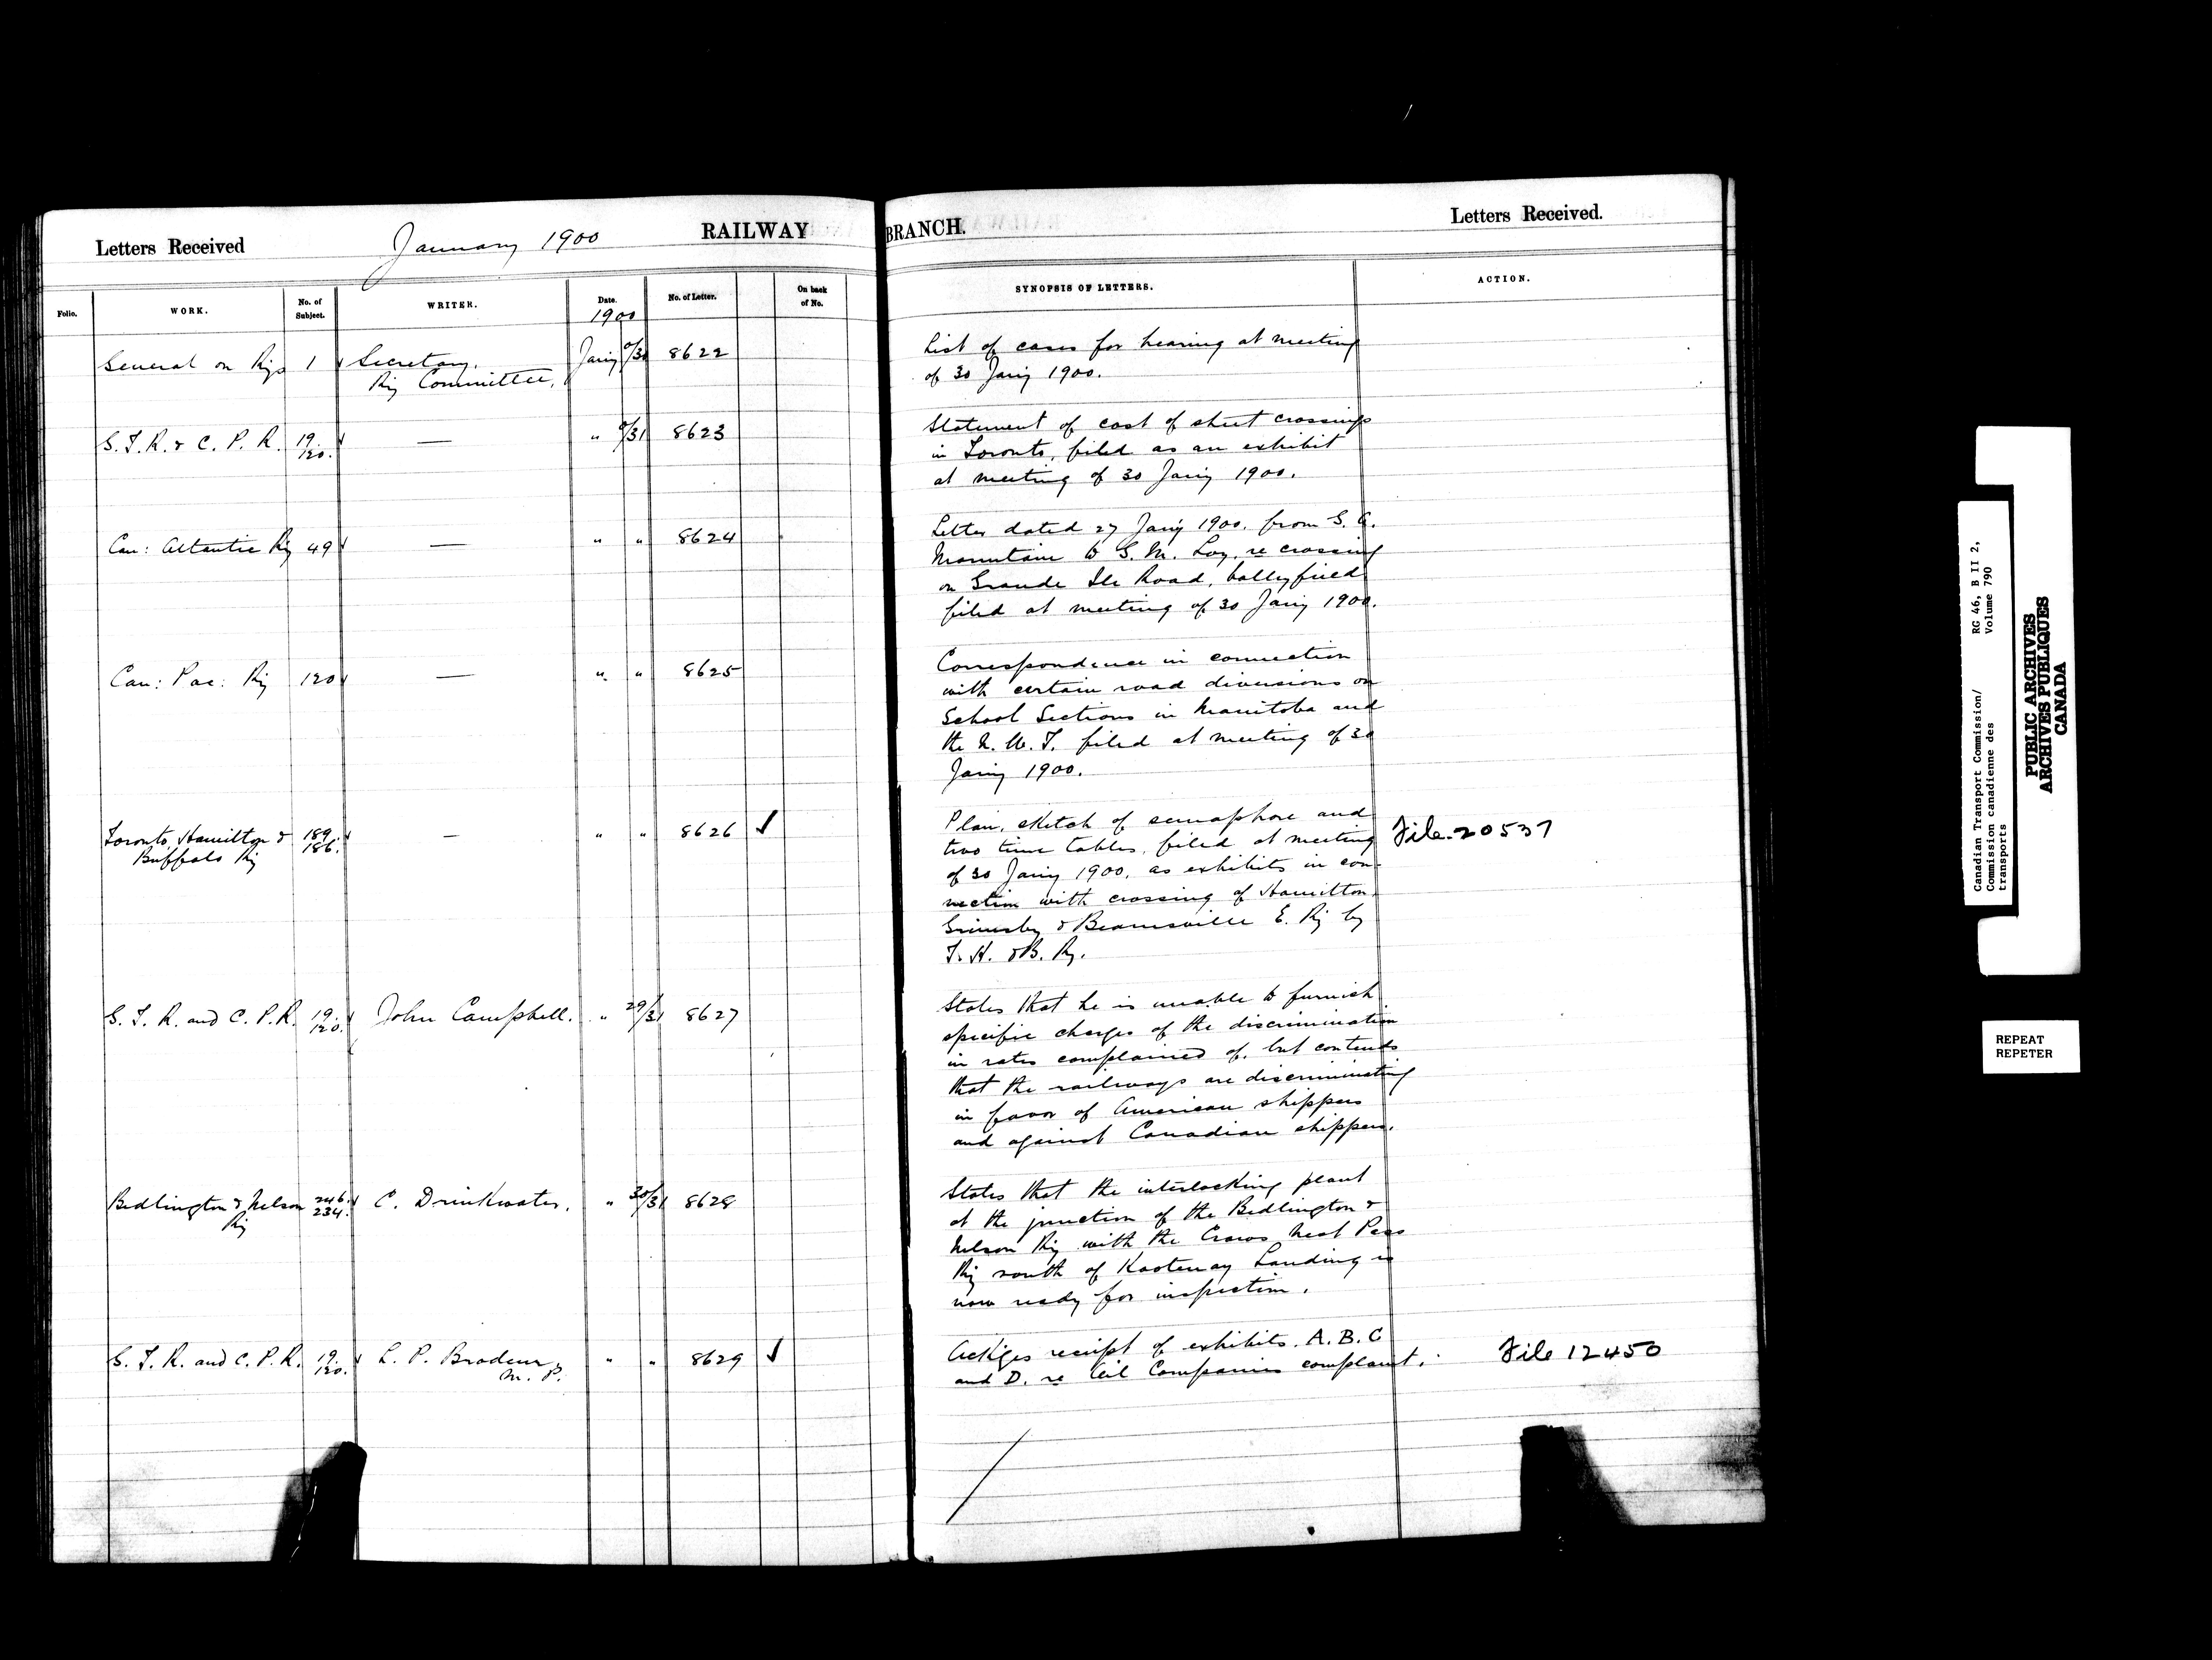 Letters Received January 1900 RAILWAY BRANCH. Letters Received.
Folio. WORK. No. of Subject. WRITER. Date. 1900 No. of Letter. On back of No. SYNOPSIS OF LETTERS. ACTION.
General on Rys 1 Secretary, Jany 0/30 8622 List of cases for hearing at meeting
Ry Committee, of 30 Jany 1900.
G.T.R. & C.P.R. 19. 120. — " 0/31 8623 Statement of cost of street crossings
in Toronto, filed as an exhibit
at meeting of 30 Jany 1900.
Can: Atlantic Ry 49 — " " 8624 Letter dated 27 Jany 1900. from G. A.
Mountain to G. M. Loy, re crossing
on Grande Ile Road, Valleyfield
filed at meeting of 30 Jany 1900.
Can: Pac: Ry 120 — " " 8625 Correspondence in connection
with certain road diversions on
School Sections in Manitoba and
the N. W. T. filed at meeting of 30
Jany 1900.
Toronto, Hamilton & 189. — " " 8626 ✓ Plan, sketch of semaphore and File. 20537
Buffalo Ry 186. two time tables, filed at meeting
of 30 Jany 1900. as exhibits in con-
nection with crossing of Hamilton
Grimsby & Beamsville E. Ry by
T. H. & B. Ry.
G. T. R. and C. P. R. 19. 120. John Campbell. " 29/31 8627 States that he is unable to furnish
specific charges of the discrimination
in rates complained of, but contends
that the railways are discriminating
in favor of American shippers
and against Canadian shippers.
Bedlington & Nelson 246. C. Drinkwater, " 30/31 8628 States that the interlocking plant
Ry 234. at the junction of the Bedlington &
Nelson Ry with the Crows Nest Pass
Ry south of Kootenay Landing is
now ready for inspection.
G. T. R. and C. P. R. 19. 120. L. P. Brodeur, " " 8629 ✓ Ackges receipt of exhibits. A. B. C File 12450
M. P. and D. re Oil Companies complaint.
Canadian Transport Commission/ RG 46, B II 2,
Commission canadienne des Volume 790
transports
PUBLIC ARCHIVES
ARCHIVES PUBLIQUES
CANADA
REPEAT
REPETER